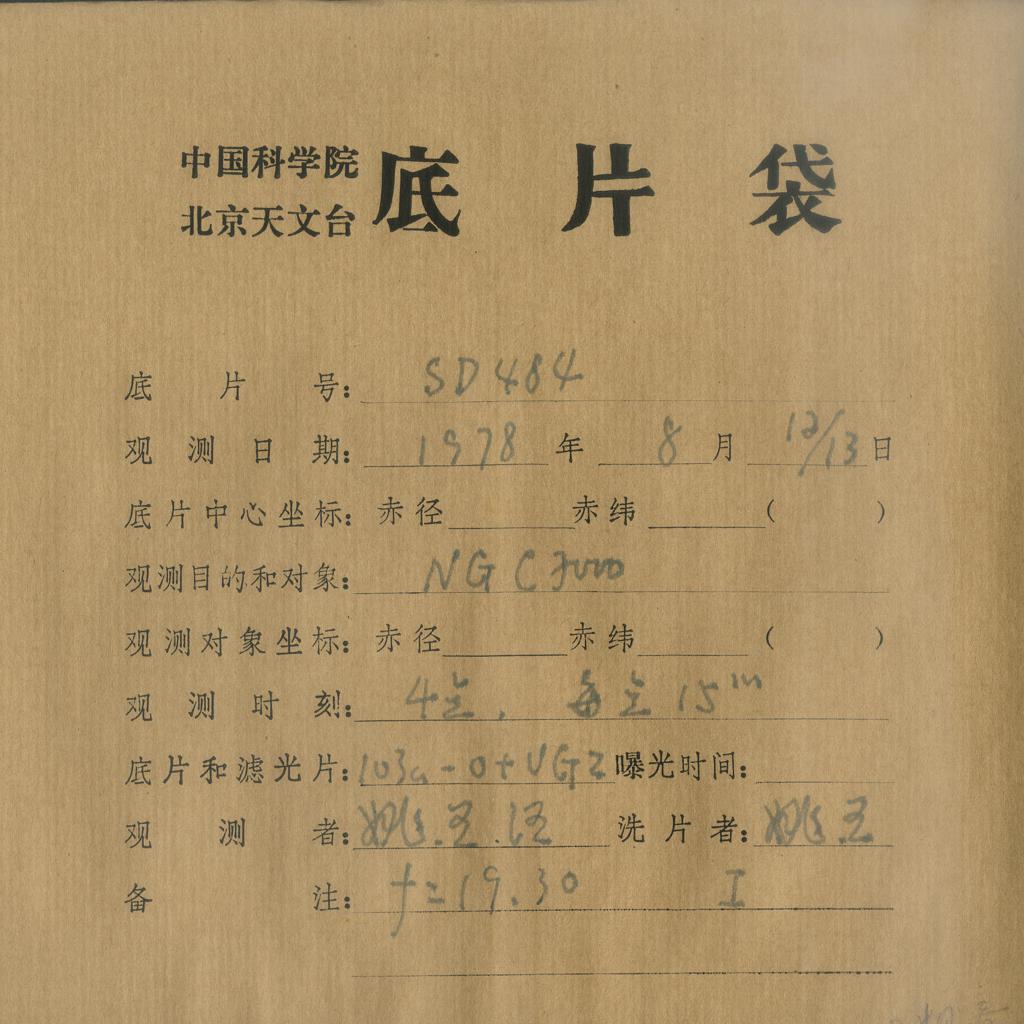 中国科学院
北京天文台
底片袋
底片号: SD484
观测日期: 1978年 8月 12/13日
底片中心坐标: 赤径 赤纬 ( )
观测目的和对象: NGC 7000
观测对象坐标: 赤径 赤纬 ( )
观测时刻: 4 , 每 15m
底片和滤光片: 103a-O+UG2 曝光时间:
观测者: 姚.王.汪 洗片者: 姚.王
备注: f=19.30 I